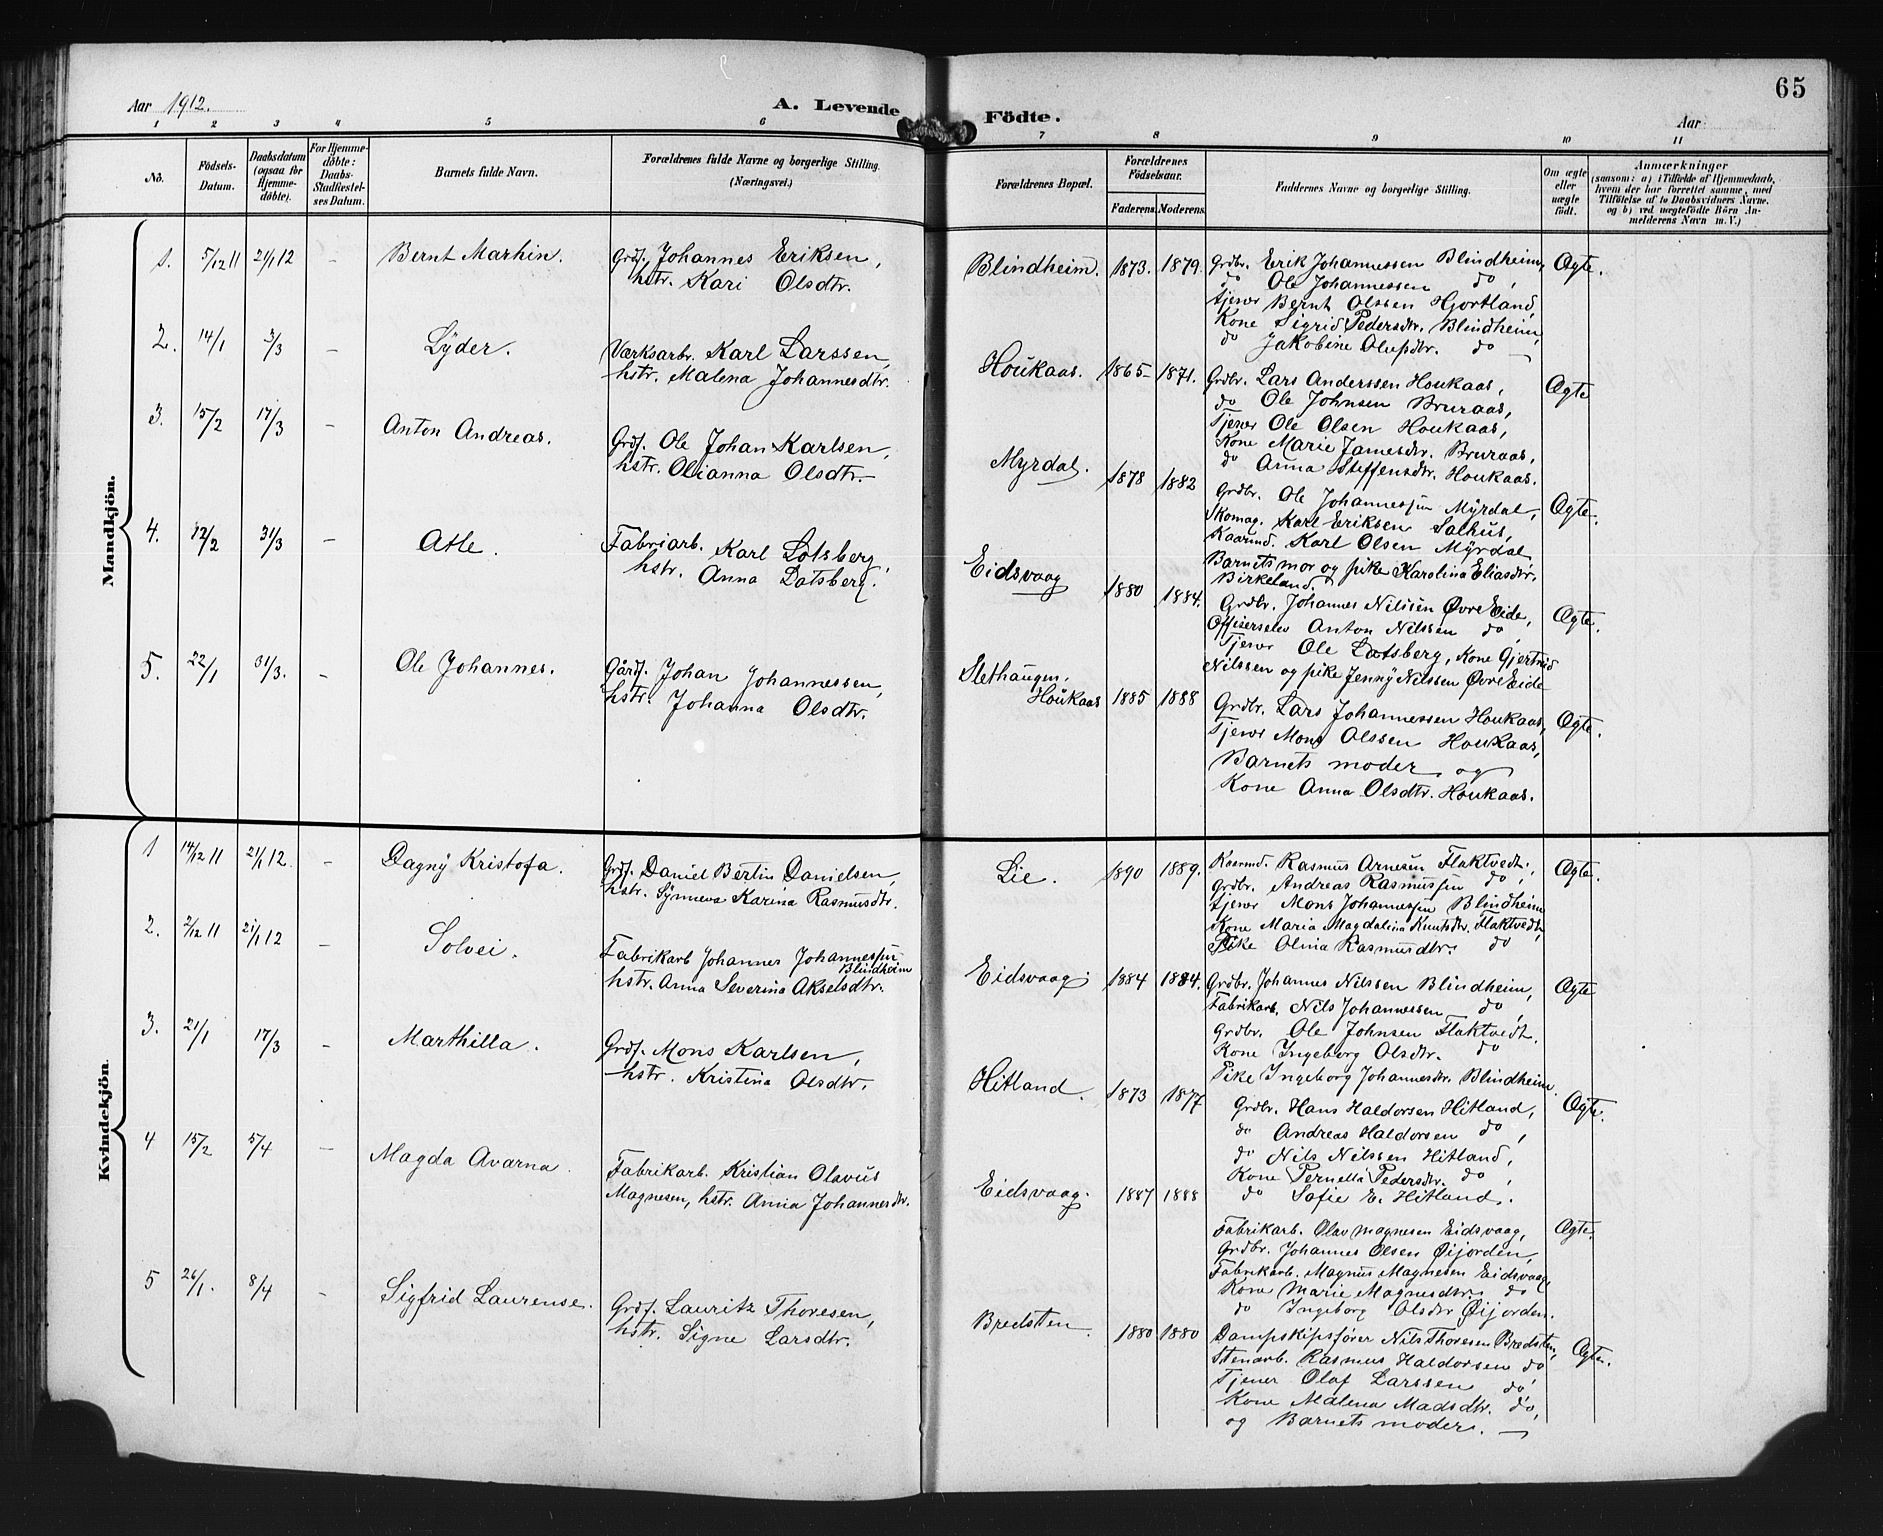 65
Aar 1912.
A. Levende Födte.
Aar
1 2 3 4 5 6 7 8 9 10 11
No.
Födsels-Datum.
Daabsdatum (ogsaa for Hjemme-døbte).
For Hjemme-døbte: Daabs-Stadfæstel-ses Datum.
Barnets fulde Navn.
Forældrenes fulde Navne og borgerlige Stilling. (Næringsvei.)
Forældrenes Bopæl.
Forældrenes Fødselsaar.
Faderens. Moderens.
Faddernes Navne og borgerlige Stilling.
Om ægte eller uægte født.
Anmærkninger
(saasom: a) i Tilfælde af Hjemmedaab, hvem der har forrettet samme, med Tilföielse af to Daabsvidners Navne, og b) ved uægtefödte Börn An-melderens Navn m. V.)
Mandkjön.
1. 5/12 11 21/1 12 – Bernt Marhin. Grdf. Johannes Eriksen, hstr. Kari Olsdtr. Blindheim. 1873. 1879. Ægte.
Grdbr. Erik Johannessen Blindheim,
do Ole Johannessen do,
tjener Bernt Olssen Hjortland,
Kone Sigrid Pedersdtr. Blindheim,
do Jakobine Olufsdtr. do –
2. 14/1 3/3 – Lyder. Værksarbr. Karl Larssen, hstr. Malena Johannesdtr. Houkaas. 1865– 1871. Ægte
Grdbr. Lars Anderssen Houkaas,
do Ole Johnsen Bruraas,
Tjener Ole Olsen Houkaas,
Kone Marie Jamesdtr. Bruraas,
do Anna Steffensdtr. Houkaas.
3. 15/2 17/3 – Anton Andreas. Grdf. Ole Johan Karlsen, hstr. Olianna Olsdtr. Myrdal. 1878 1882 Ægte.
Grdbr. Ole Johannessen Myrdal,
Skomag. Karl Eriksen Salhus,
Kaarmd. Karl Olsen Myrdal
Barnets mor og pike Karolina Eliasdtr.
Birkeland.
4. 12/2 31/3 – Atle. Fabriarb. Karl Lotsberg, hstr. Anna Datsberg. Eidsvaag 1880 1884. Ægte.
Grdbr. Johannes Nilssen Øvre Eide,
Offiserselev Anton Nilssen do,
Tjener Ole Latsberg, Kone Gjertrud
Nilssen og pike Jenny Nilssen Øvre Eide
5. 22/1 31/3. – Ole Johannes. Gårdf. Johan Johannessen, hstr. Johanna Olsdtr. Slethaugen. Houkaas 1885 1888 Ægte.
Grdbr. Lars Johannessen Houkaas,
Tjener Mons Olssen Houkaas,
Barnets moder og
Kone Anna Olsdtr. Houkaas.
Kvindekjön.
1 14/12 11 21/1 12. – Dagny Kristofa. Grdf. Daniel Bertin Danielsen, hstr. Synneva Karina Rasmusdtr. Lie. 1890 1889. Ægte.
Kaarmd. Rasmus Arnesen Flaktvedt.
Grdbr. Andreas Rasmussen do,
tjener Mons Johannessen Blindheim
Kone Maria Magdalina Knutsdtr. Flaktvedt,
Pike Olina Rasmusdtr. do
2. 2/12 11 21/1 12 – Solvei. Fabrikarb Johannes Johannessen Blindheim hstr. Anna Severina Akselsdtr. Eidsvaag. 1884 1884. Ægte
Grdbr. Johannes Nilssen Blindheim,
Fabrikarb. Nils Johannessen do,
Grdbr. Ole Johnsen Flaktvedt.
Kone Ingeborg Olsdtr. do
Pike Ingeborg Johannesdtr. Blindheim.
3. 21/1 17/3 – Marthilla. Grdf. Mons Karlsen, hstr. Kristina Olsdtr. Hitland. 1873 1877 Ægte.
Grdbr. Hans Haldorsen Hitland,
do Andreas Haldorsen do,
do Nils Nilssen Hitland,
Kone Pernella Pedersdtr. do,
do Sofie E. Hitland.
4 15/2 5/4 – Magda Avarna. Fabrikarb. Kristian Olavus Magnesen, hstr. Anna Johannesdtr. Eidsvaag. 1887 1888 Ægte.
Fabrikarb. Olav Magnesen Eidsvaag,
Grdbr. Johannes Olsen Øijorden,
Fabrikarb. Magnus Magnesen Eidsvaag
Kone Marie Magnesdtr. do
do Ingeborg Olsdtr Øijorden.
5 26/1. 8/4 – Sigfrid Laurense. Grdf. Lauritz Thoresen, hstr. Signe Larsdtr. Bredsten 1880 1880 Ægte.
Dampskipsfører Nils Thoresen Bredsten,
Stenarb. Rasmus Haldorsen do
Tjener Olaf Larssen do,
Kone Malena Madsdtr. do,
og Barnets moder. –